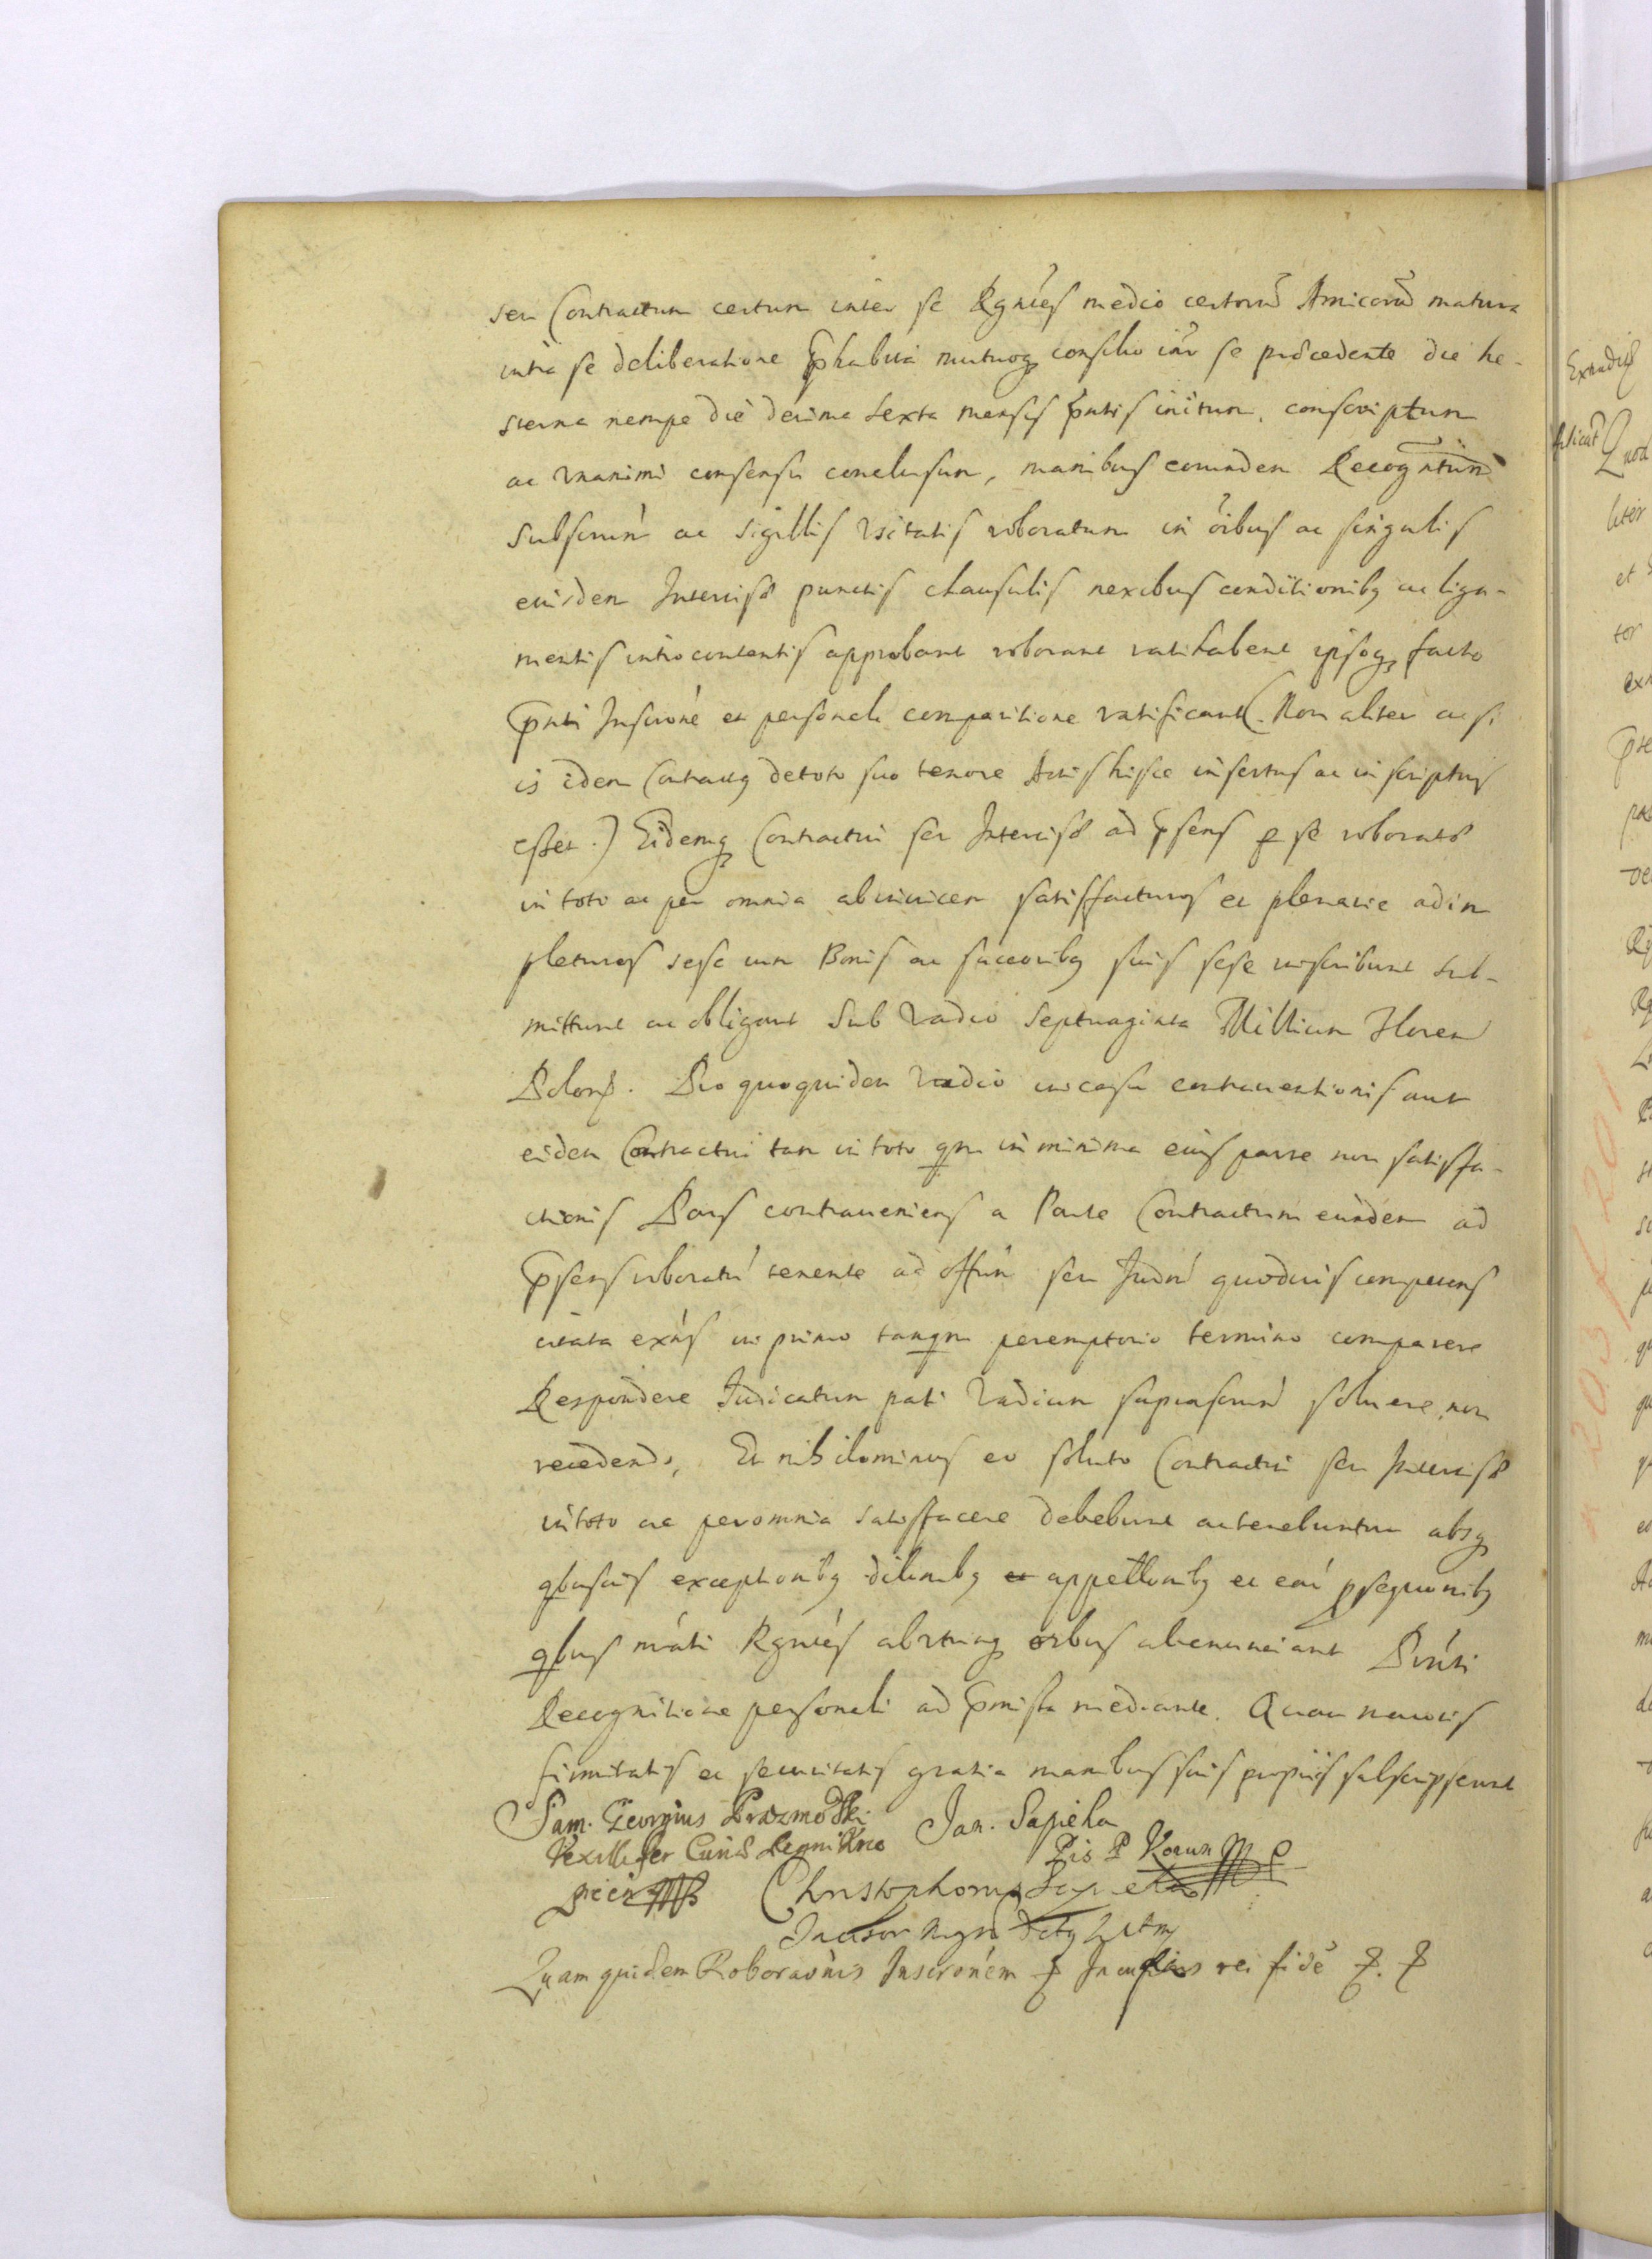 seu Contractum certum inter se Rgntes medio certorū Amicorū matura
intra se deliberatione prhabita mutuoq consilio intr se prdocedente die he-
sterna nempe die decima sexta mensis pntis initum, conscriptum
ac vnanimi consensu conclusum, manibus eorundem Recogntium
subscrium ac sigillis vsitatis roboratum in oibus ac singulis
eiusdem Intercisae punctis clausulis nexibus conditionibq ac liga-
mentis introcontentis approbant roborant ratihabent ipsoq facto
pnti Inscrione et personali comparitione ratificant (Non aliter ac si
is idem Contractq de toto suo tenore Actis hisce insertus ac inscriptus
esset.) Eidemq Contractui seu Intercisae ad psens p se roboratae
in toto ac per omnia abinuicem satisfacturos et plenarie adim
pleturos sese cum Bonis ac succoribq suis sese inscribunt sub-
mittunt ac obligant sub vadio septuaginta Millium Floren
Polon. Pro quoquidem vadio in casu contrauentionis aut
eidem Contractui tam in toto qm in minima eius parte non satisfa-
ctionis Pars contraueniens a Parte Contractum eundem ad
psens roboratū tenente ad offm seu Judm quoduis competens
citata exns in primo tanqm peremptorio termino comparere
Respondere Judicatum pati vadium suprascrium soluere, non
recedendo, Et nihilominus eo soluto Contractui seu Intercisae
in toto ac per omnia satisfacere debebunt ac tenebuntur absq
qbusuis exceptionibq dilonibq et appellonibq et earū psequonibq
qbus Rgntes abvtrinq oibus abrenunciant Pnti
Recognitione personali ad pmissa mediante. Quam maioris
firmitatis et securitatis gratia manibus suis proprijs subscripserunt
Sam. Georgius Prazmowski Jan. Sapieha
Vexillifer Curiae Regni
Pis P Koron mp
Christophorus Sapieha
Incisor Mgni Dctq Litm
Quam quidem Roboraonis Inscronem rei fidē